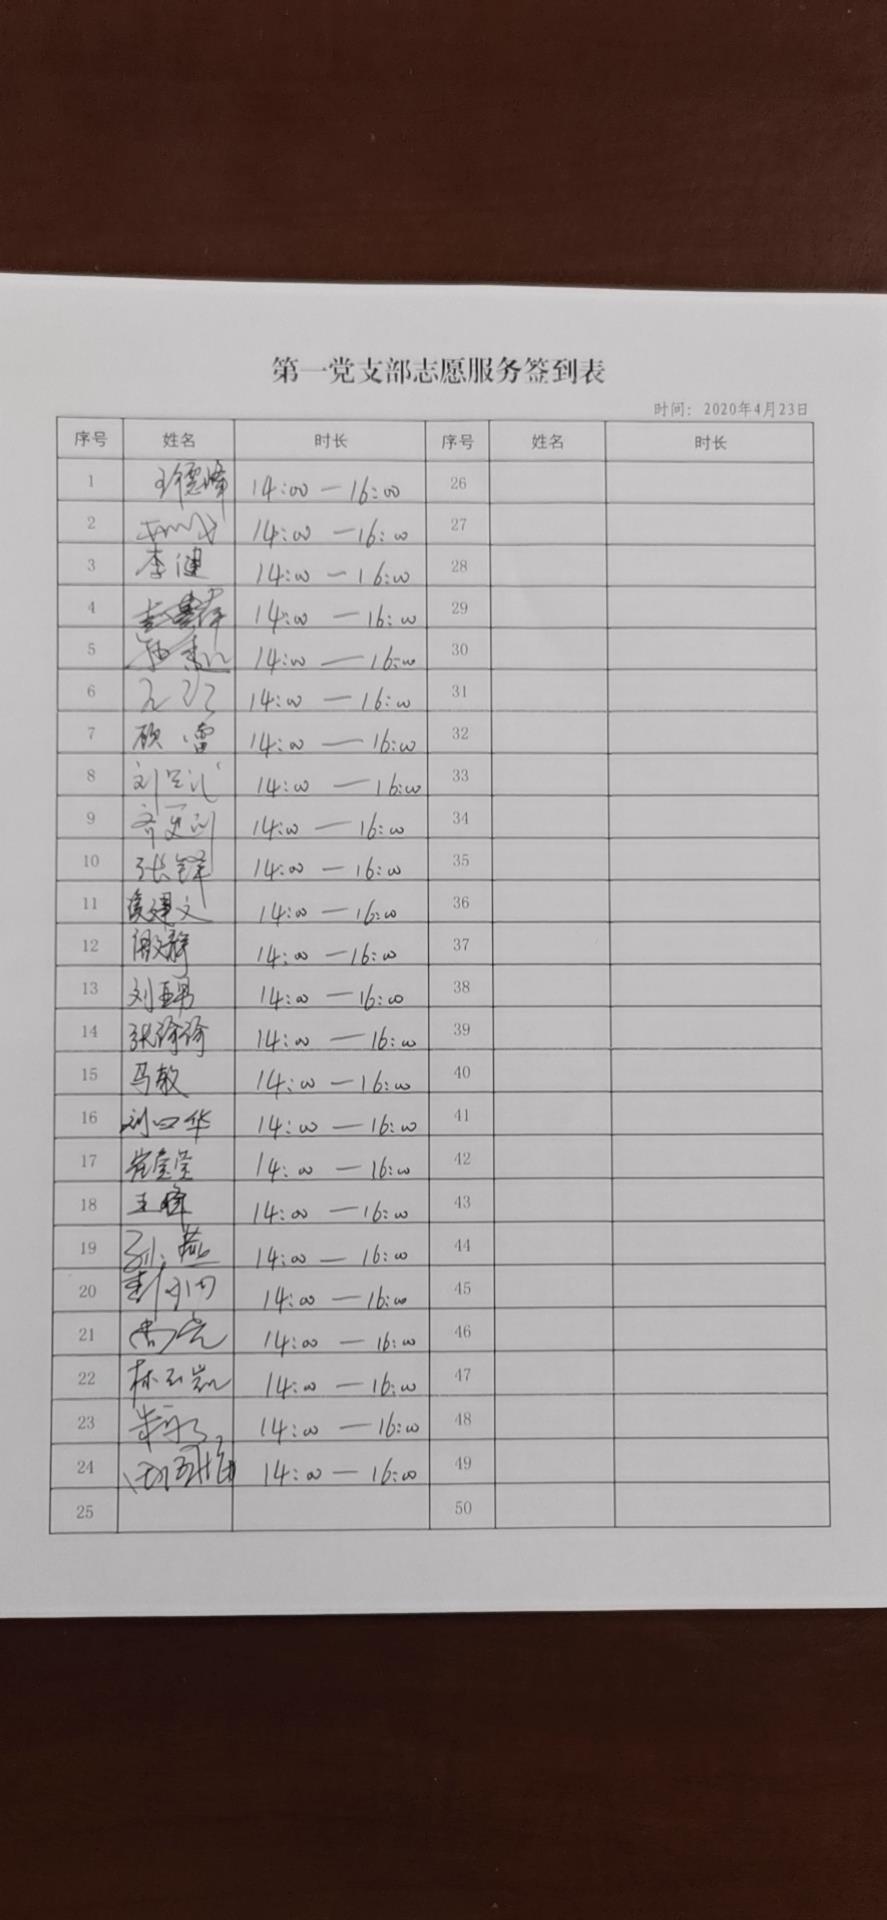 第一党支部志愿服务签到表
时间：2020年4月23日
序号 姓名 时长 序号 姓名 时长
1 王德峰 14:00—16:00 26
2 14:00—16:00 27
3 李健 14:00—16:00 28
4 14:00—16:00 29
5 14:00—16:00 30
6 14:00—16:00 31
7 顾雷 14:00—16:00 32
8 14:00—16:00 33
9 14:00—16:00 34
10 张铎 14:00—16:00 35
11 侯建文 14:00—16:00 36
12 14:00—16:00 37
13 刘亚男 14:00—16:00 38
14 14:00—16:00 39
15 马敏 14:00—16:00 40
16 刘四华 14:00—16:00 41
17 崔莹莹 14:00—16:00 42
18 王峰 14:00—16:00 43
19 孙燕 14:00—16:00 44
20 14:00—16:00 45
21 14:00—16:00 46
22 林玉岚 14:00—16:00 47
23 14:00—16:00 48
24 14:00—16:00 49
25 50